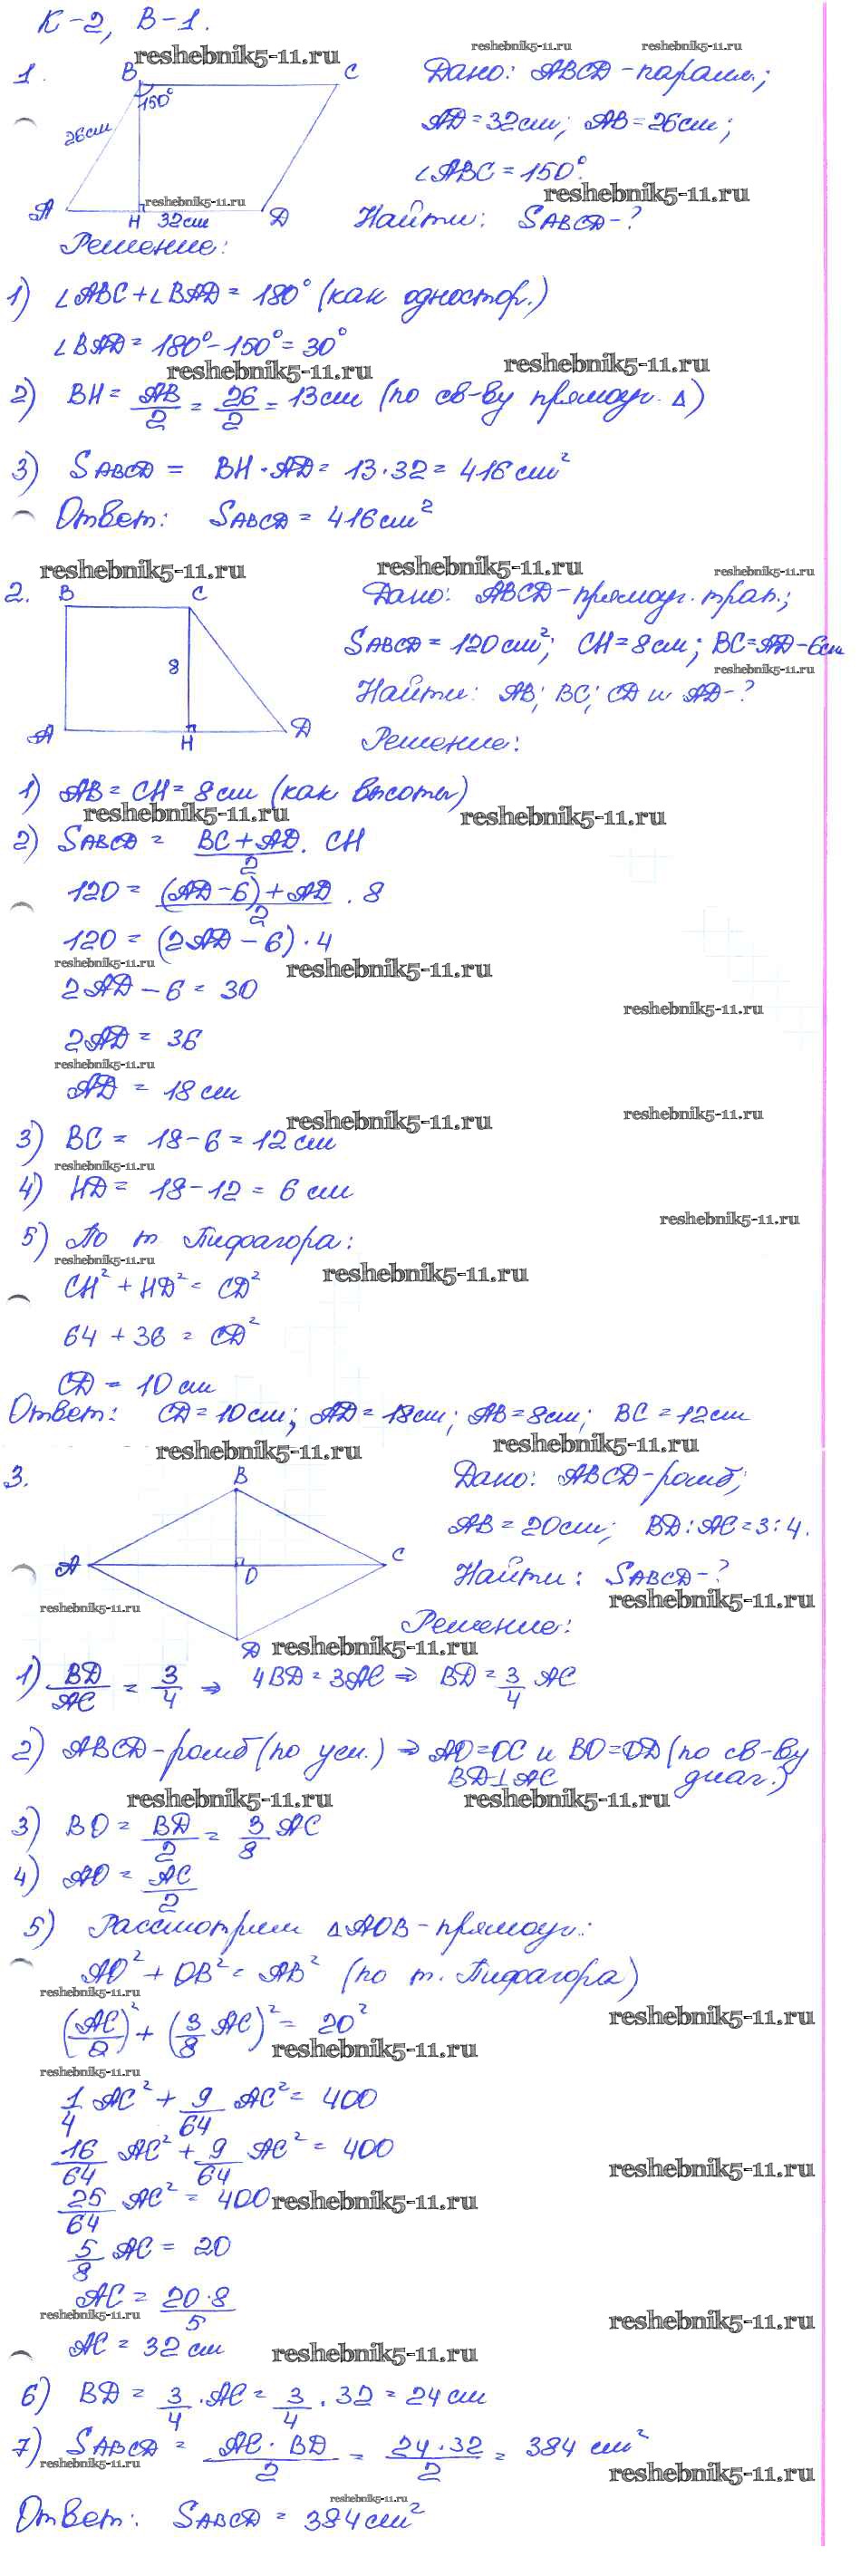 К-2, В-1.
reshebnik5-11.ru
reshebnik5-11.ru reshebnik5-11.ru
1.
B C
150°
26см
A H 32см D
reshebnik5-11.ru
Дано: ABCD-паралл.;
AD=32см; AB=26см;
∠ABC=150°.
reshebnik5-11.ru
Найти: SABCD-?
Решение:
1) ∠ABC+∠BAD=180° (как одностор.)
∠BAD=180°-150°=30°
reshebnik5-11.ru reshebnik5-11.ru
2) BH= AB/2 = 26/2 = 13см (по св-ву прямоуг. Δ)
3) SABCD = BH·AD=13·32=416см²
Ответ: SABCD=416см²
reshebnik5-11.ru reshebnik5-11.ru reshebnik5-11.ru
2.
B C
8
A H D
Дано: ABCD-прямоуг. трап.;
SABCD=120см²; CH=8см; BC=AD-6см
reshebnik5-11.ru
Найти: AB; BC; CD и AD-?
Решение:
1) AB=CH=8см (как высоты)
reshebnik5-11.ru reshebnik5-11.ru
2) SABCD = (BC+AD)/2 · CH
120 = ((AD-6)+AD)/2 · 8
120 = (2AD-6)·4
reshebnik5-11.ru reshebnik5-11.ru
2AD-6=30
reshebnik5-11.ru
2AD = 36
reshebnik5-11.ru
AD = 18см
reshebnik5-11.ru reshebnik5-11.ru
3) BC = 18-6=12см
reshebnik5-11.ru
4) HD= 18-12=6см
reshebnik5-11.ru
5) По т Пифагора:
reshebnik5-11.ru reshebnik5-11.ru
CH²+HD²=CD²
64+36=CD²
CD=10см
Ответ: CD=10см; AD=18см; AB=8см; BC=12см
reshebnik5-11.ru reshebnik5-11.ru
3.
B
A O C
D
Дано: ABCD-ромб;
AB=20см; BD:AC=3:4.
Найти: SABCD-?
reshebnik5-11.ru reshebnik5-11.ru
Решение:
reshebnik5-11.ru
1) BD/AC = 3/4 ⇒ 4BD=3AC ⇒ BD=3/4 AC
2) ABCD-ромб (по усл.) ⇒ AO=OC и BO=OD (по св-ву
BD⊥AC диаг.)
reshebnik5-11.ru reshebnik5-11.ru
3) BO = BD/2 = 3/8 AC
4) AO = AC/2
5) Рассмотрим ΔAOB-прямоуг.:
AO²+OB²=AB² (по т. Пифагора)
reshebnik5-11.ru reshebnik5-11.ru
(AC/2)²+(3/8 AC)²=20²
reshebnik5-11.ru
reshebnik5-11.ru
1/4 AC²+9/64 AC²=400
16/64 AC²+9/64 AC²=400
reshebnik5-11.ru
25/64 AC²=400
reshebnik5-11.ru
5/8 AC=20
AC= 20·8/5
reshebnik5-11.ru reshebnik5-11.ru
AC=32см
reshebnik5-11.ru
6) BD= 3/4 ·AC= 3/4 ·32=24см
7) SABCD = AC·BD/2 = 24·32/2 = 384 см²
reshebnik5-11.ru reshebnik5-11.ru
reshebnik5-11.ru
Ответ: SABCD=384см²